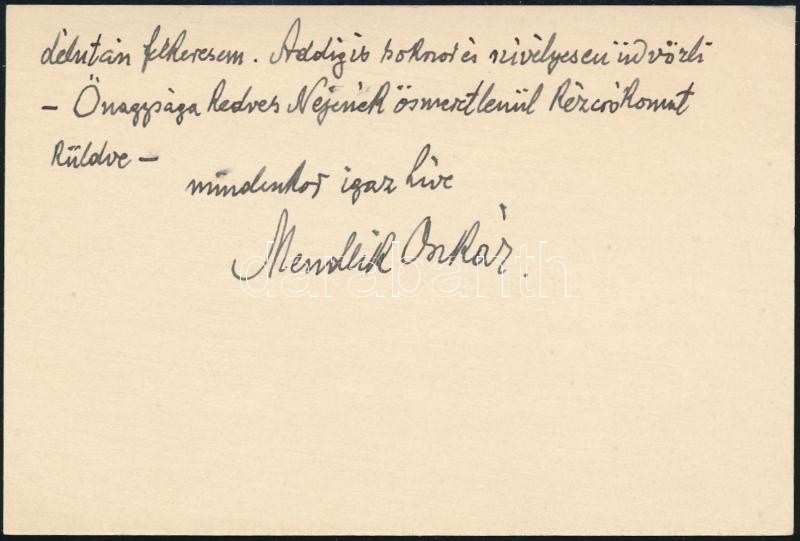 délután felkeresem. Addigis sokszor és szívélyesen üdvözli
– Őnagysága kedves Nejének ösmeretlenül kézcsókomat
küldve –
mindenkor igaz híve
Mendlik Oszkár.
darabanth